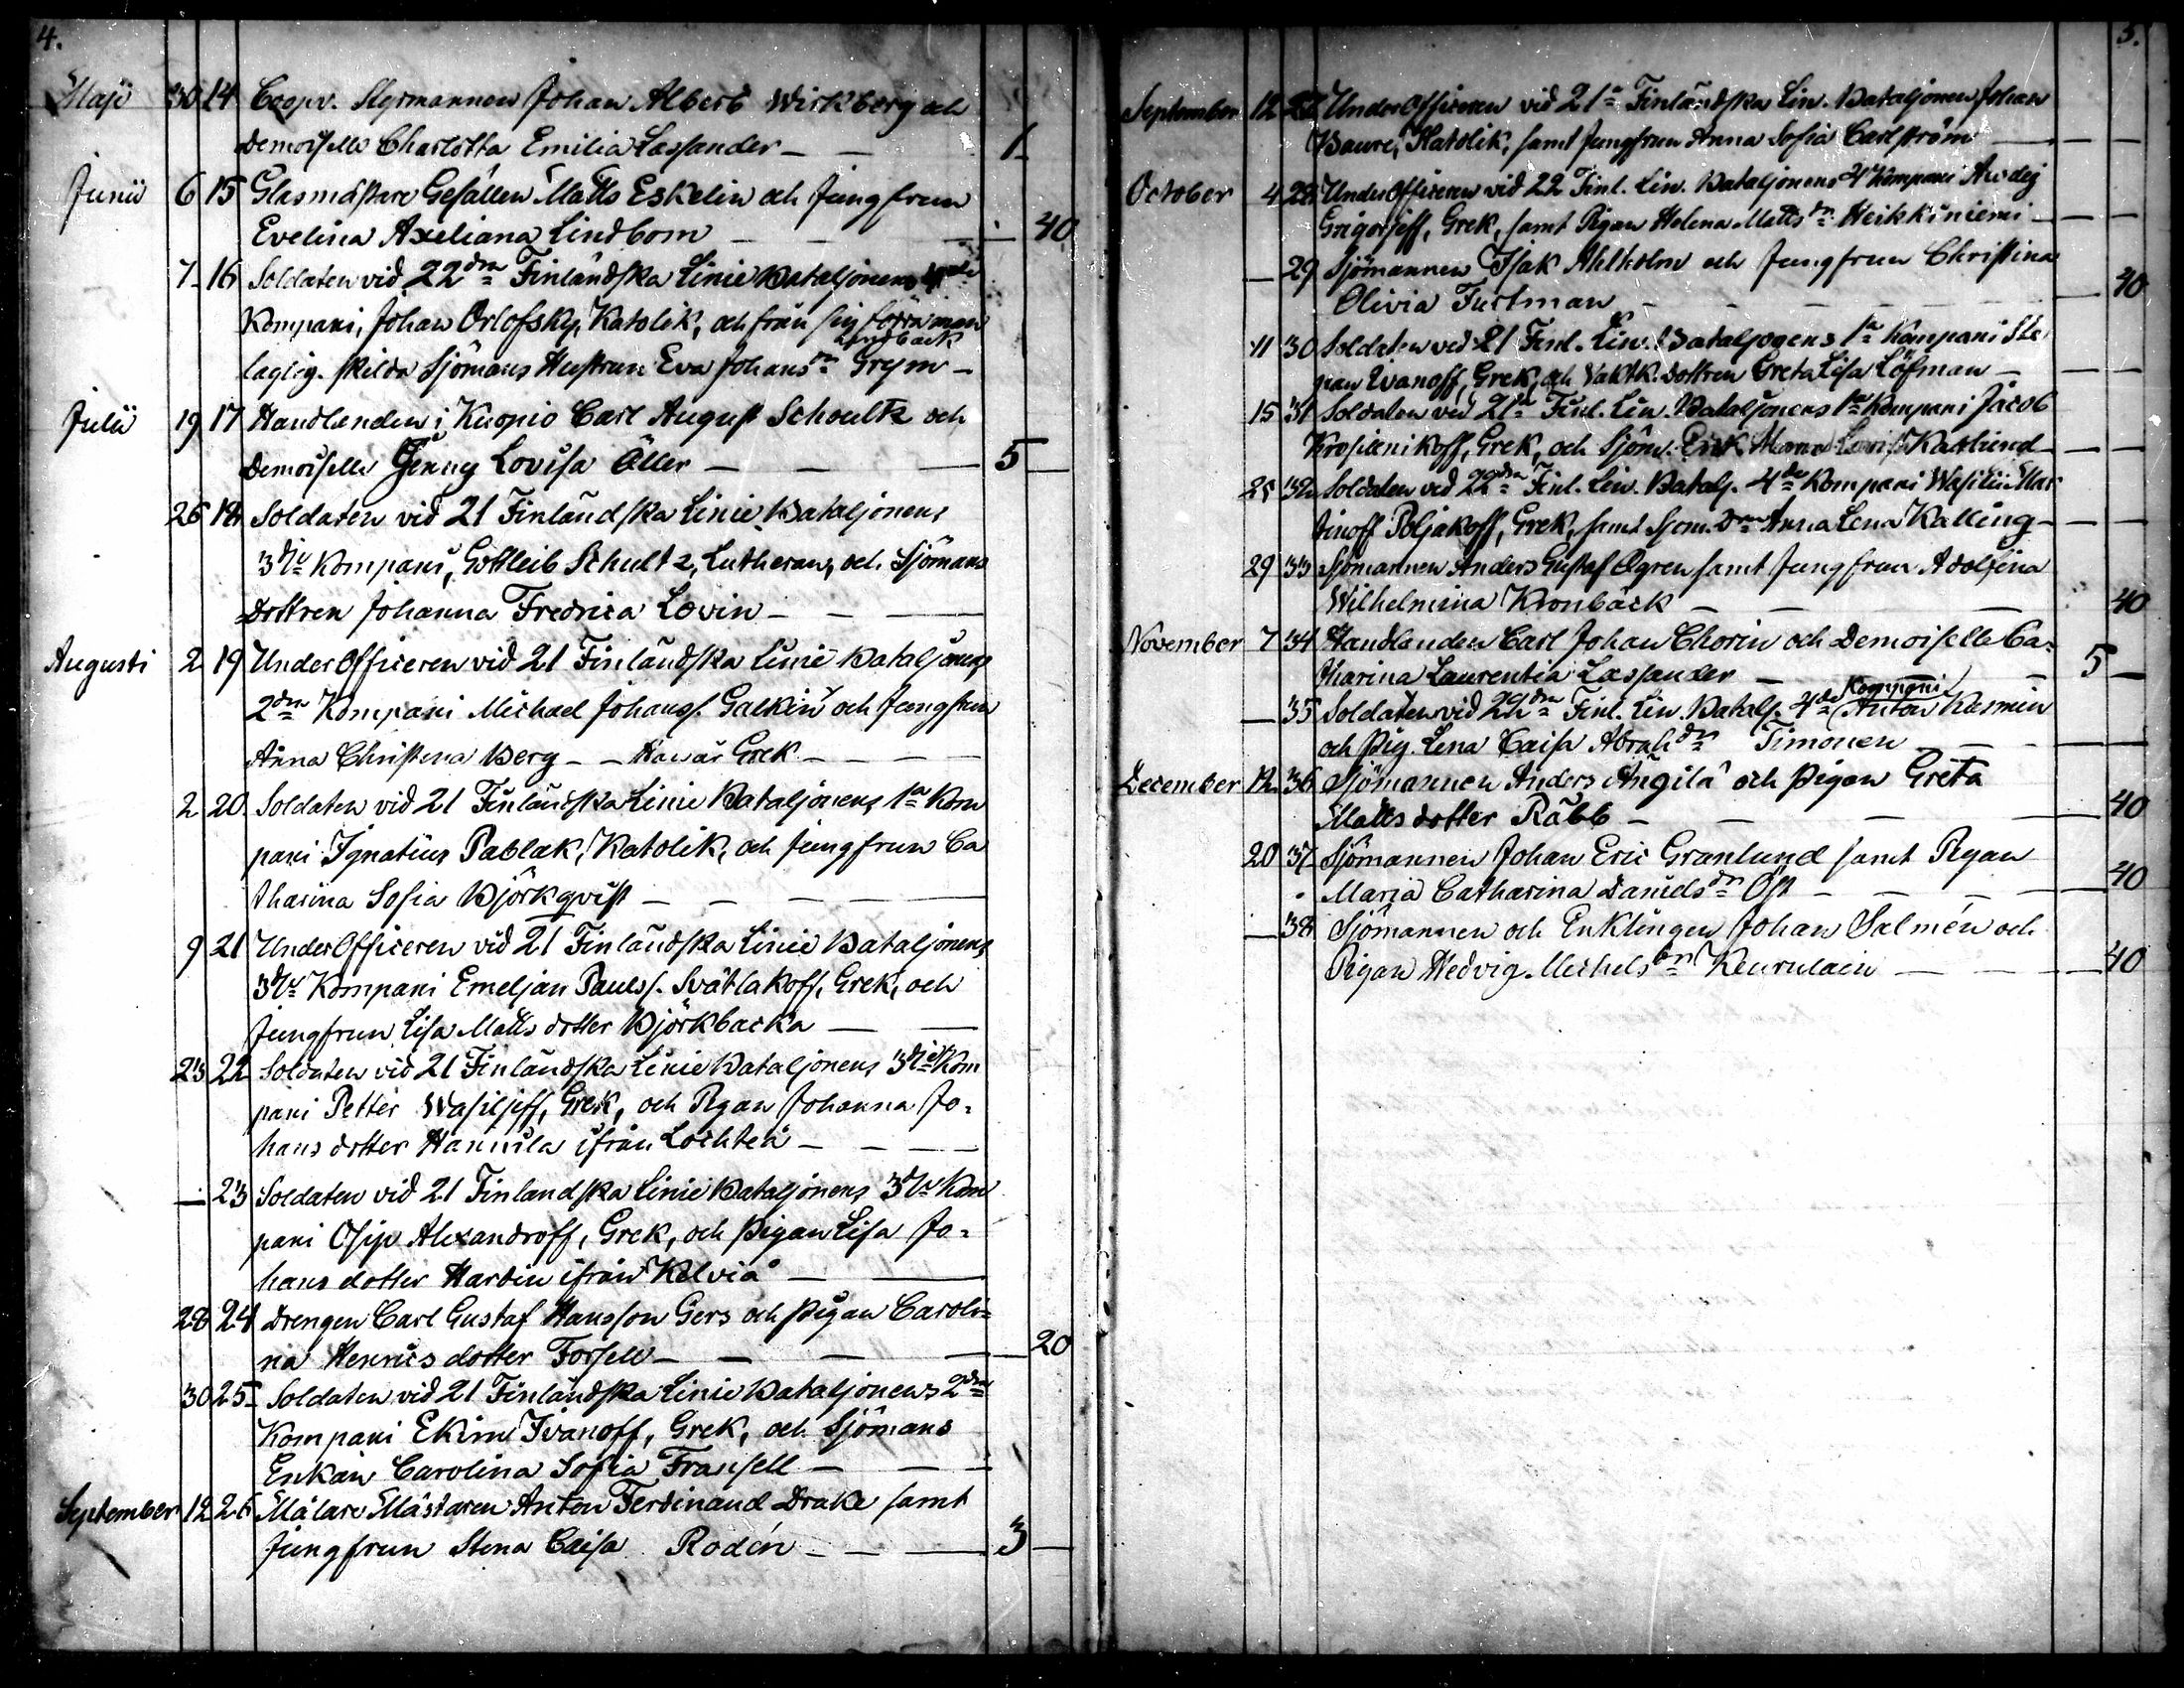 4.
Maji 30 14 Coopv. Styrmannen Johan Albert Wirkberg och
Demoiselle Charlotta Emilia Lassander — — 1 —
Junii 6 15 Glasmästare Gesällen Matts Eskelin och Jungfrun
Evelina Axeliana Lindbom — — — 40
7 16 Soldaten vid 22dra Finländska Linie Bataljonens
Kompani, Johan Orlofsky, Katolik, och från sin förra man
Lindbäck
laglig. skilda Sjömans Hustrun Eva Johansdr Grym —
Julii 19 17 Handlanden i Kuopio Carl August Schoultz och
Demoiselle Jenny Lovisa Öller — — — 5 —
26 18 Soldaten vid 21 Finländska Linie Bataljonens
3die Kompani, Gottleib Schultz, Lutheran, och Sjömans
Dottren Johanna Fredrica Lovin — — —
Augusti 2 19 UnderOfficeren vid 21 Finländska Linie Bataljonens
2dra Kompani Michael Johanss. Galkin och Jungfrun
Anna Christina Berg — — Han är Grek — — —
2 20. Soldaten vid 21 Finländska Linie Bataljonens 1a Kom
pani Ignatius Pablak, Katolik, och Jungfrun Ca
tharina Sofia Björkqvist — — — —
9 21 UnderOfficeren vid 21 Finländska Linie Bataljonens
3die Kompani Emeljan Paulss. Svätlakoff, Grek, och
Jungfrun Lisa Matts dotter Björkbacka — —
23 22 Soldaten vid 21 Finländska Linie Bataljonens 3die Kom
pani Petter Wasiljeff, Grek, och Pigan Johanna Jo=
hans dotter Hannula ifrån Lochteå — — —
— 23 Soldaten vid 21 Finlandska Linie Bataljonens 3die Kom
pani Osip Alexandroff, Grek, och Pigan Lisa Jo=
hans dotter Hardin ifrån Kelviå — —
28 24 Drengen Carl Gustaf Hansson Gers och Pigan Caroli=
na Henrics dotter Forsell — — — — 20
30 25 Soldaten vid 21 Finländska Linie Bataljonens 2dra
Kompani Ekim Ivanoff, Grek, och Sjömans
Enkan Carolina Sofia Fransell — — —
September 12 26 Målare Mästaren Anton Ferdinand Drake samt
Jungfrun Stena Caisa Rodén — — — 3 —
5.
September 12 27 UnderOfficeren vid 21a Finländska Lin. Bataljonen Johan
Baure, Katolik, samt Jungfrun Anna Sofia Carlström — —
October 4 28 UnderOfficeren vid 22 Finl. Lin. Bataljonens 4 Kompani
Grigorjeff, Grek, samt Pigan Helena Mattsdr Heikkiniemi — —
— 29 Sjömannen Isak Ahlholm och Jungfrun Christina
Olivia Turtman — — — — — 40
11 30 Soldaten vid 21 Finl. Lin. Bataljonens 1a Kompani Ste
pan Ivanoff, Grek, och Vaktk. dottren Greta Lisa Löfman — — —
15 31 Soldaten vid 21a Finl. Lin. Bataljonens 1a Kompani Jacob
Grek, och Sjöm. Enk. Lovisa Katlund — —
25 32 Soldaten vid 22dra Finl. Lin. Batalj. 4de Kompani Wasilii Mar
tinoff Poljakoff, Grek, samt Sjom. Dr Anna Lena Kalling — — —
29 33 Sjömannen Anders Gustaf Ogren samt Jungfrun Adolfina
Wilhelmina Kronbäck — — — 40
November 7 34 Handlanden Carl Johan Chorin och Demoiselle Ca=
tharina Laurentia Lassander — — — 5 —
Kompani
— 35 Soldaten vid 22dra Finl. Lin. Batalj. 4de Anton Kasmin
och Pig. Lena Caisa Abrah.dr Timonen — — —
December 12 36 Sjömannen Anders Ängilä och Pigan Greta
Matts dotter Räbb — — — — 40
20 37 Sjömannen Johan Eric Granlund samt Pigan
Maria Catharina Danielsdr Öst — — — 40
— 38 Sjömannen och Enklingen Johan Salmén och
Pigan Hedvig Michelsdr Keurulain — — — 40